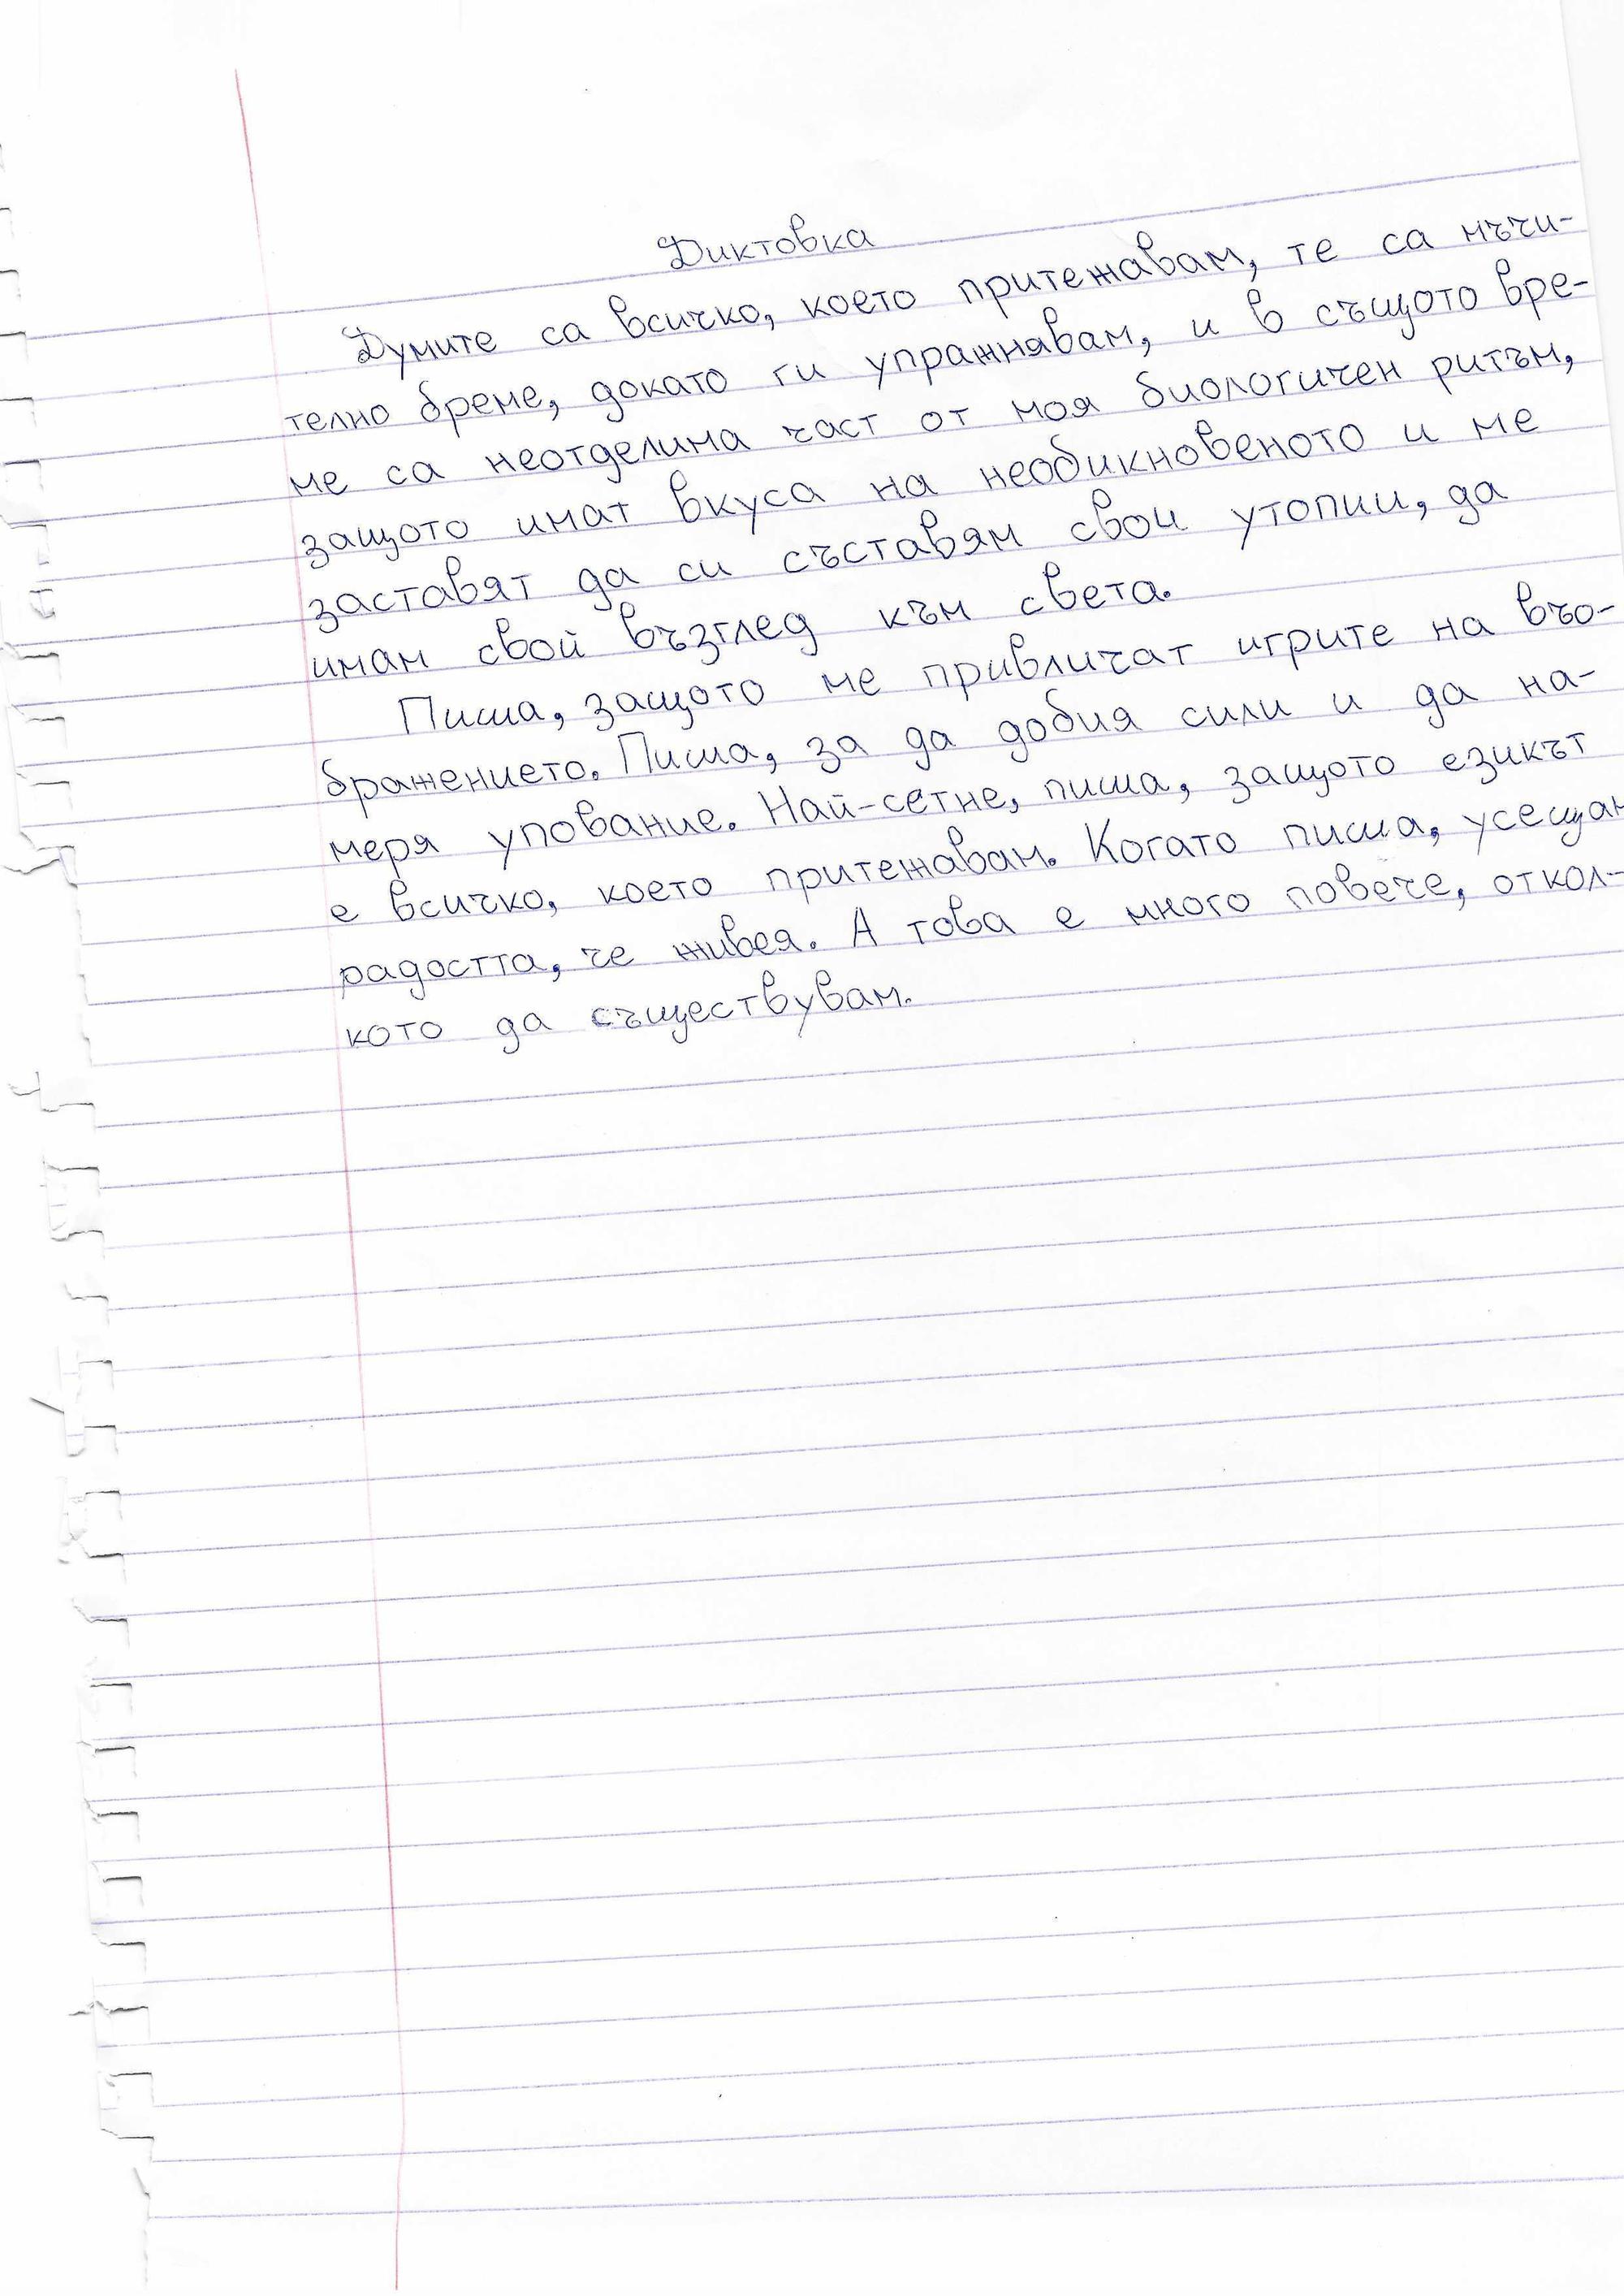 Диктовка
Думите са всичко, което притежавам, те са мъчи-
телно бреме, докато ги упражнявам, и в същото вре-
ме са неотделима част от моя биологичен ритъм,
защото имат вкуса на необикновеното и ме
заставят да си съставям свои утопии, да
имам свой възглед към света.
Пиша, защото ме привличат игрите на въо-
бражението. Пиша, за да добия сили и да на-
меря упование. Най-сетне, пиша, защото езикът
е всичко, което притежавам. Когато пиша, усещам
радостта, че живея. А това е много повече, откол-
кото да съществувам.